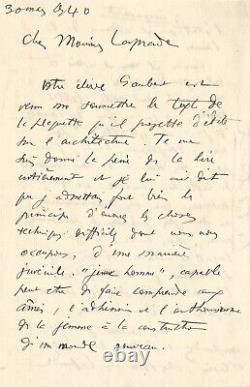 30 mars 1940
Cher Monsieur Laprade
Votre élève Gaubert est
venu me soumettre le texte de
la plaquette qu'il projette d'éditer
sur l'architecture. Je me
suis donné la peine de la lire
entièrement et je lui ai dit
que j'admettais fort bien le
principe d'envisager les choses
techniques difficiles dont nous nous
occupons, d'une manière
juvénile, "jeune homme", capable
peut être de faire comprendre aux
aînés, l'adhésion et l'enthousiasme
de la jeunesse à la construction
d'un monde nouveau.